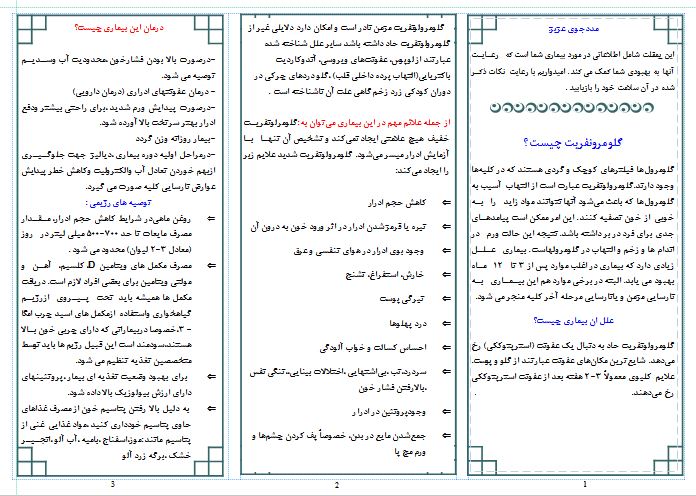 مددجوی عزیز
این پمفلت شامل اطلاعاتی در مورد بیماری شما است که رعایت
آنها به بهبودی شما کمک می کند. امیدواریم با رعایت نکات ذکر
شده در آن سلامت خود را بازیابید .
گلومرونفریت چیست؟
گلومرول‌ها فیلترهای کوچک و گردی هستند که در کلیه‌ها
وجود دارند.گلومرولونفریت عبارت است از التهاب آسیب به
گلومرول‌ها که باعث می‌شود آنها نتوانند مواد زاید را به
خوبی از خون تصفیه کنند. این امر ممکن است پیامدهای
جدی برای فرد در بر داشته باشد. نتیجه این حالت ورم در
اندام ها و زخم و التهاب در گلومرولهاست. بیماری علل
زیادی دارد که بیماری در اغلب موارد پس از ۳ تا ۱۲ ماه
بهبود می یابد. البته در برخی موارد هم این بیماری به
نارسایی مزمن و یانارسایی مرحله آخر کلیه منجر می شود.
علل ان بیماری چیست؟
گلومرولونفریت حاد به دنبال یک عفونت (استرپتوککی) رخ
می‌دهد. شایع ترین مکان‌های عفونت عبارتند از گلو و پوست.
علایم کلیوی معمولاً ۳-۲ هفته بعد از عفونت استرپتوککی
رخ می‌دهند.
1
گلومرولونفریت مزمن نادر است و امکان دارد دلایلی غیر از
گلومرولونفریت حاد داشته باشد سایر علل شناخته شده
عبارتند از لوپوس، عفونتهای ویروسی، آندوکاردیت
باکتریایی(التهاب پرده داخلی قلب) ،گلو دردهای چرکی در
دوران کودکی زرد زخم گاهی علت آن ناشناخته است .
از جمله علائم مهم در این بیماری می‌توان به :گلومرلونفریت
خفیف هیچ علامتی ایجاد نمی‌کند و تشخیص آن تنها با
آزمایش ادرار میسر می‌شود. گلومرولونفریت شدید علایم زیر
را ایجاد می‌کند:
⇐ کاهش حجم ادرار
⇐ تیره یا قرمزشدن ادرار در اثر ورود خون به درون آن
⇐ وجود بوی ادرار در هوای تنفسی و عرق
⇐ خارش، استفراغ، تشنج
⇐ تیرگی پوست
⇐ درد پهلوها
⇐ احساس کسالت و خواب آلودگی
⇐ سردرد،تب،بی‌اشتهایی ،اختلالات بینایی،،تنگی نفس
،بالارفتن فشار خون
⇐ وجودپروتئین در ادرار
⇐ جمع‌شدن مایع در بدن، خصوصاً پف کردن چشم‌ها و
ورم مچ پا
2
درمان این بیماری چیست؟
-درصورت بالا بودن فشارخون،محدودیت آب وسدیم
توصیه می شود.
- درمان عفونتهای ادراری (درمان دارویی)
-درصورت پیدایش ورم شدید ،برای راحتی بیشتر ودفع
ادرار بهتر سرتخت بالا آورده شود.
-بیمار روزانه وزن گردد
-درمراحل اولیه دوره بیماری،دیالیز جهت جلوگیری
ازبهم خوردن تعادل آب والکترولیت وکاهش خطر پیدایش
عوارض نارسایی کلیه صورت می گیرد.
توصیه های رژیمی :
⇐ روغن ماهی‌در شرایط کاهش حجم ادرار، مقدار
مصرف مایعات تا حد ۷۰۰-۵۰۰ میلی لیتر در روز
(معادل ۳-۲ لیوان) محدود می شود .
⇐ مصرف مکمل های ویتامین D، کلسیم، آهن و
مولتی ویتامین برای بعضی افراد لازم است. دریافت
مکمل ها همیشه باید تحت پیروی ازرژیم
گیاهخواری واستفاده ازمکمل های اسید چرب امگا
-۳،خصوصا دربیمارانی که دارای چربی خون بالا
هستند،سودمند است این قبیل رژیم ها باید توسط
متخصصین تغذیه تنظیم می شود.
⇐ برای بهبود وضعیت تغذیه ای بیمار، پروتئینهای
دارای ارزش بیولوژیک بالا داده شود.
⇐ به دلیل بالا رفتن پتاسیم خون از مصرف غذاهای
حاوی پتاسیم خودداری کنید ،مواد غذایی غنی از
پتاسیم مانند:موز،اسفناج ،بامیه ، آب آلو ،انجیر
خشک ،برگه زرد آلو
3